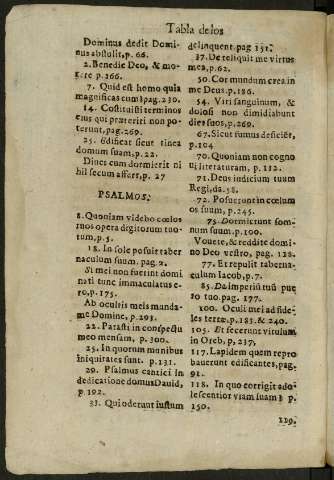 Tabla de los
Dominus dedit Domi-
nus abstulit, p. 66.
2. Benedic Deo, & mo-
rere p. 266.
7. Quid est homo quia
magnificas eum? pag. 230.
14. Costituisti terminos
eius qui præteriri non po-
terunt, pag. 269.
25. Edificat sicut tinea
domum suam, p. 22.
Diues cum dormierit ni
hil secum affert, p. 27
PSALMOS.
8. Quoniam videbo cœlos
tuos opera digitorum tuo-
rum, p. 5.
18. In sole posuit taber
naculum suum. pag. 2.
Si mei non fuerint domi
nati tunc immaculatus e-
ro, p. 175.
Ab ocultis meis munda-
me Domine, p. 293.
22. Parasti in conspectu
meo mensam, p. 300.
25. In quorum manibus
iniquitates sunt. p. 131.
29. Psalmus cantici in
dedicatione domus Dauid,
p. 192.
33. Qui oderunt iustum
delinquent. pag 151.
37. Dereliquit me virtus
mea, p. 62.
50. Cor mundum crea in
me Deus. p. 186.
54. Viri sanguinum, &
dolosi non dimidiabunt
dies suos, p. 269.
67. Sicut fumus deficiët,
p. 104
70. Quoniam non cogno
ui literaturam, p. 112.
71. Deus iudicium tuum
Regi, da. 58.
72. Posuerunt in cœlum
os suum, p. 245.
75. Dormierunt som-
num suum. p. 100.
Vouete, & reddite domi-
no Deo vestro, pag. 128.
77. Et repulit taberna-
culum Iacob, p. 7.
85. Da imperiũ tuũ pue
ro tuo. pag. 177.
100. Oculi mei ad fide-
les terre. p. 185. & 240.
105. Et fecerunt vitulum
in Oreb, p, 237,
117. Lapidem quem repro
bauerunt edificantes, pag.
91.
118. In quo corrigit ado-
lescentior viam suam? p.
150.
119.